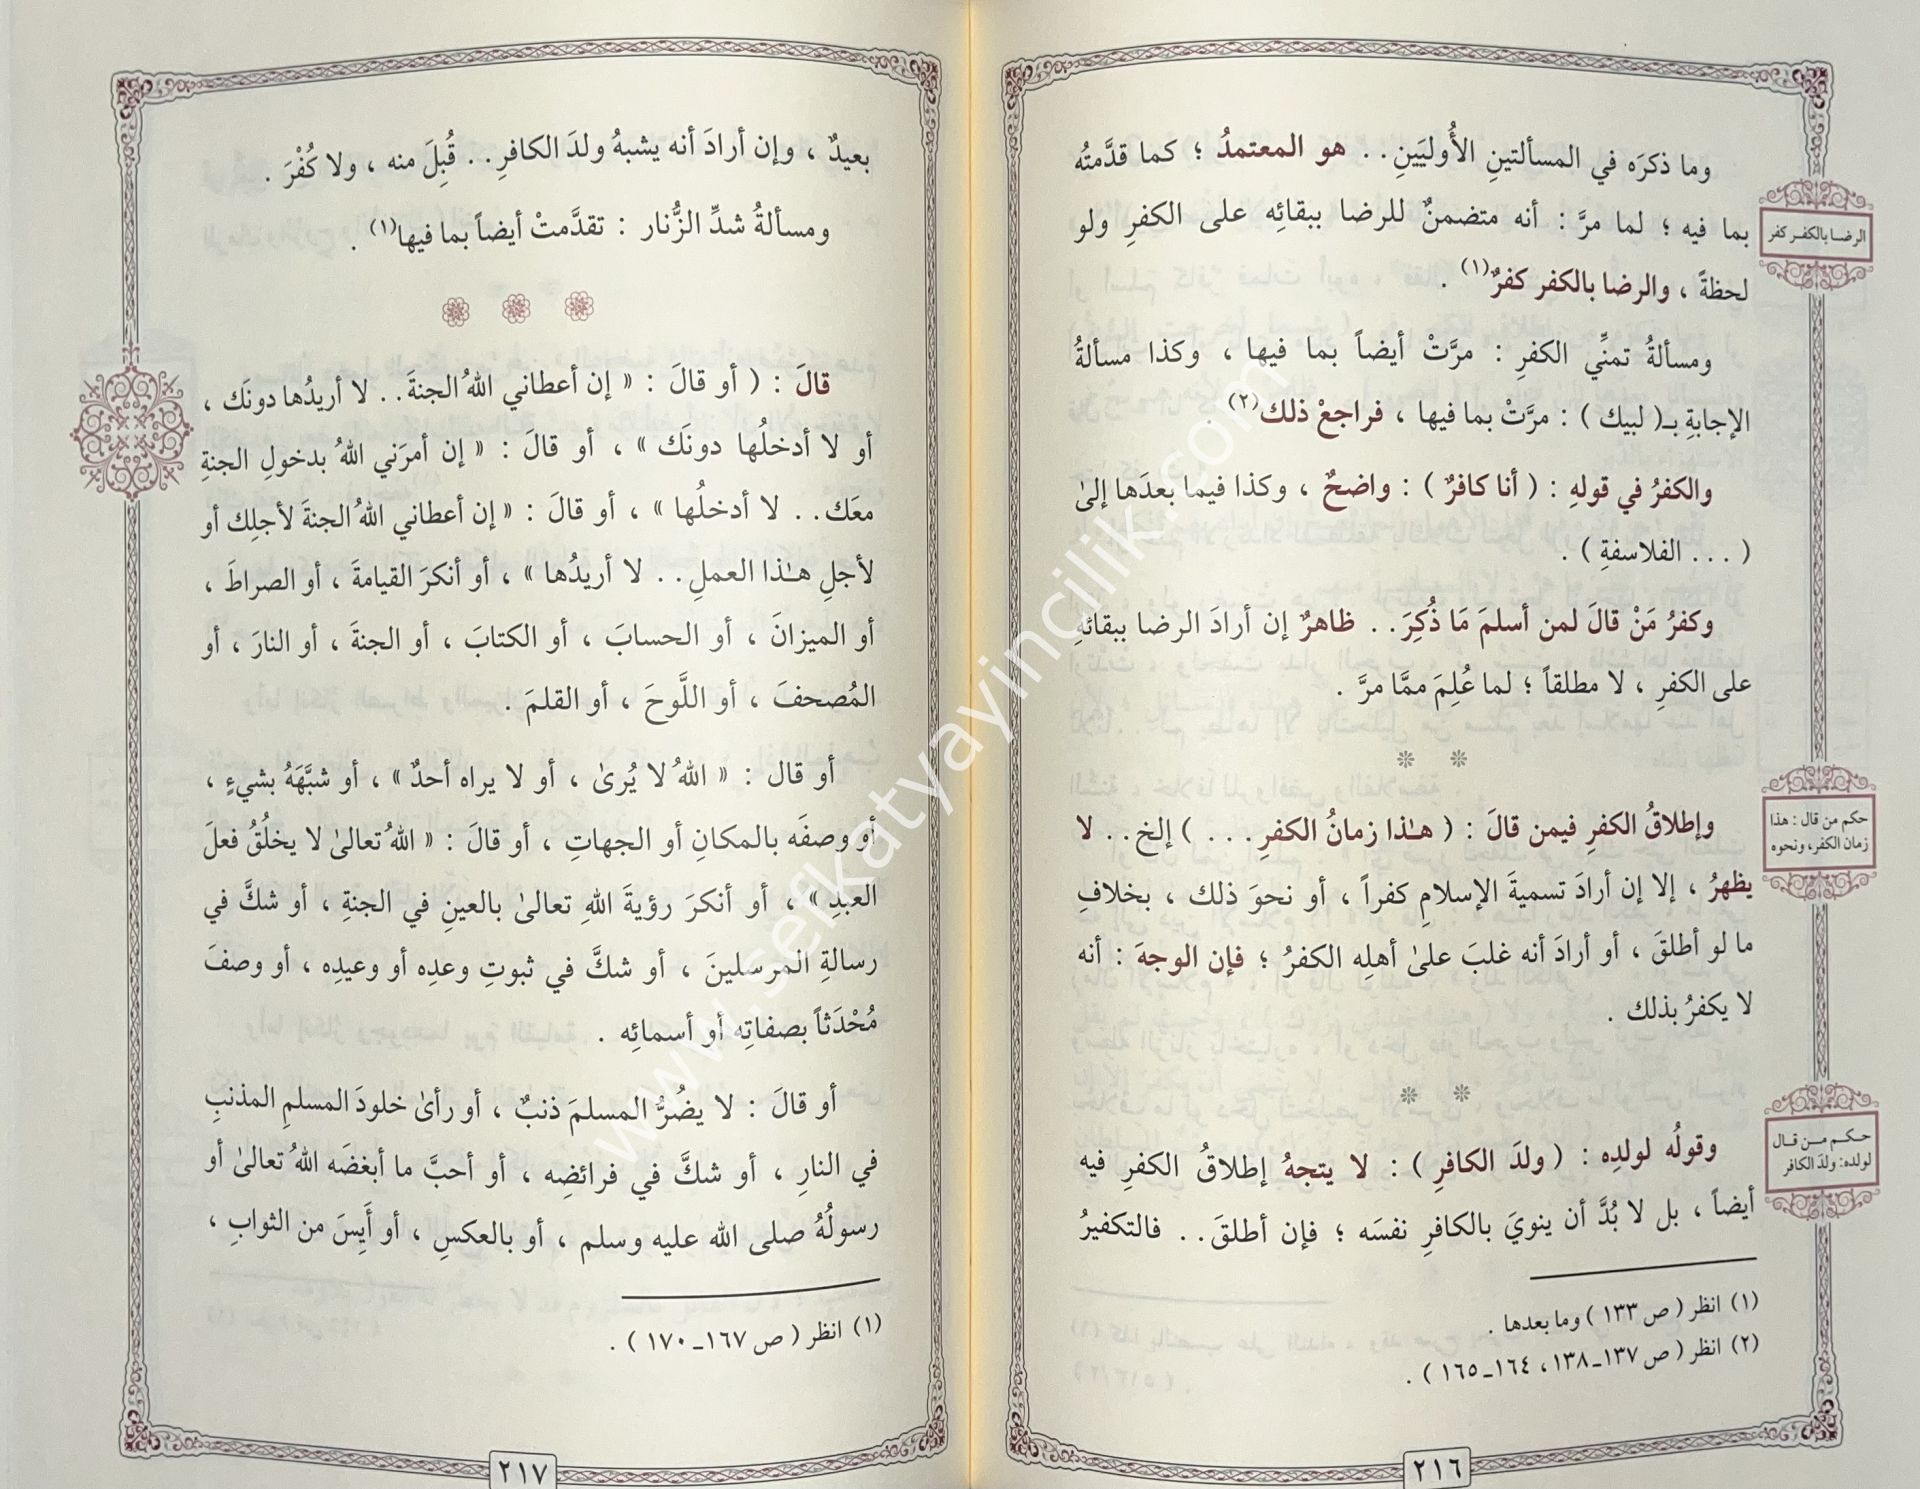 وما ذكرَه في المسألتينِ الأُوليَينِ. . هو المعتمدُ ؛ كما قدَّمتُه
بما فيه ؛ لما مرَّ : أنه متضمنٌ للرضا ببقائِه على الكفرِ ولو
لحظةً ، والرضا بالكفر كفرٌ(١) .
الرضـا بالكفـر كفر
ومسألةُ تمنِّي الكفرِ : مرَّتْ أيضاً بما فيها ، وكذا مسألةُ
الإجابةِ بـ( لبيك ) : مرَّتْ بما فيها ، فراجعْ ذلك(٢) .
والكفرُ في قولهِ : ( أنا كافرٌ ) : واضحٌ ، وكذا فيما بعدَها إلىٰ
( . . . الفلاسفةِ ) .
وكفرُ مَنْ قالَ لمن أسلمَ مَا ذُكِرَ. . ظاهرٌ إن أرادَ الرضا ببقائهِ
على الكفرِ ، لا مطلقاً ؛ لما عُلِمَ ممَّا مرَّ .
وإطلاقُ الكفرِ فيمن قالَ : ( هـٰذا زمانُ الكفرِ . . . ) إلخ. . لا
يظهرُ ، إلا إن أرادَ تسميةَ الإسلامِ كفراً ، أو نحوَ ذلك ، بخلافِ
ما لو أطلقَ ، أو أرادَ أنه غلبَ علىٰ أهلِه الكفرُ ؛ فإن الوجهَ : أنه
لا يكفرُ بذلك .
حكم من قال : هذا
زمان الكفر، ونحوه
وقولُه لولدِه : ( ولدَ الكافرِ ) : لا يتجهُ إطلاقُ الكفرِ فيه
أيضاً ، بل لا بُدَّ أن ينويَ بالكافرِ نفسَه ؛ فإن أطلقَ. . فالتكفيرُ
حكـم مـن قـال
لولده: ولدَ الكافر
(١) انظر ( ص ١٣٣ ) وما بعدها .
(٢) انظر ( ص ١٣٧ـ ١٣٨ ، ١٦٤ـ ١٦٥ ) .
٢١٦
بعيدٌ ، وإن أرادَ أنه يشبهُ ولدَ الكافرِ. . قُبِلَ منه ، ولا كُفْرَ .
ومسألةُ شدِّ الزُّنار : تقدَّمتْ أيضاً بما فيها(١) .
قالَ : ( أو قالَ : « إن أعطاني اللهُ الجنةَ. . لا أريدُها دونَك ،
أو لا أدخلُها دونَك » ، أو قالَ : « إن أمرَني اللهُ بدخولِ الجنةِ
معَك. . لا أدخلُها » ، أو قالَ : « إن أعطاني اللهُ الجنةَ لأجلِك أو
لأجلِ هـٰذا العملِ. . لا أريدُها » ، أو أنكرَ القيامةَ ، أو الصراطَ ،
أو الميزانَ ، أو الحسابَ ، أو الكتابَ ، أو الجنةَ ، أو النارَ ، أو
المُصحفَ ، أو اللَّوحَ ، أو القلمَ .
أو قال : « اللهُ لا يُرىٰ ، أو لا يراه أحدٌ » ، أو شبَّهَهُ بشيءٍ ،
أو وصفَه بالمكانِ أو الجهاتِ ، أو قالَ : « اللهُ تعالىٰ لا يخلُقُ فعلَ
العبدِ » ، أو أنكرَ رؤيةَ اللهِ تعالىٰ بالعينِ في الجنةِ ، أو شكَّ في
رسالةِ المرسلينَ ، أو شكَّ في ثبوتِ وعدِه أو وعيدِه ، أو وصفَ
مُحْدَثاً بصفاتِه أو أسمائِه .
أو قالَ : لا يضُرُّ المسلمَ ذنبٌ ، أو رأىٰ خلودَ المسلمِ المذنبِ
في النارِ ، أو شكَّ في فرائضِه ، أو أحبَّ ما أبغضَه اللهُ تعالىٰ أو
رسولُهُ صلى الله عليه وسلم ، أو بالعكسِ ، أو أَيِسَ من الثوابِ ،
(١) انظر ( ص ١٦٧ـ ١٧٠ ) .
٢١٧
www.sefkatyayincilik.com